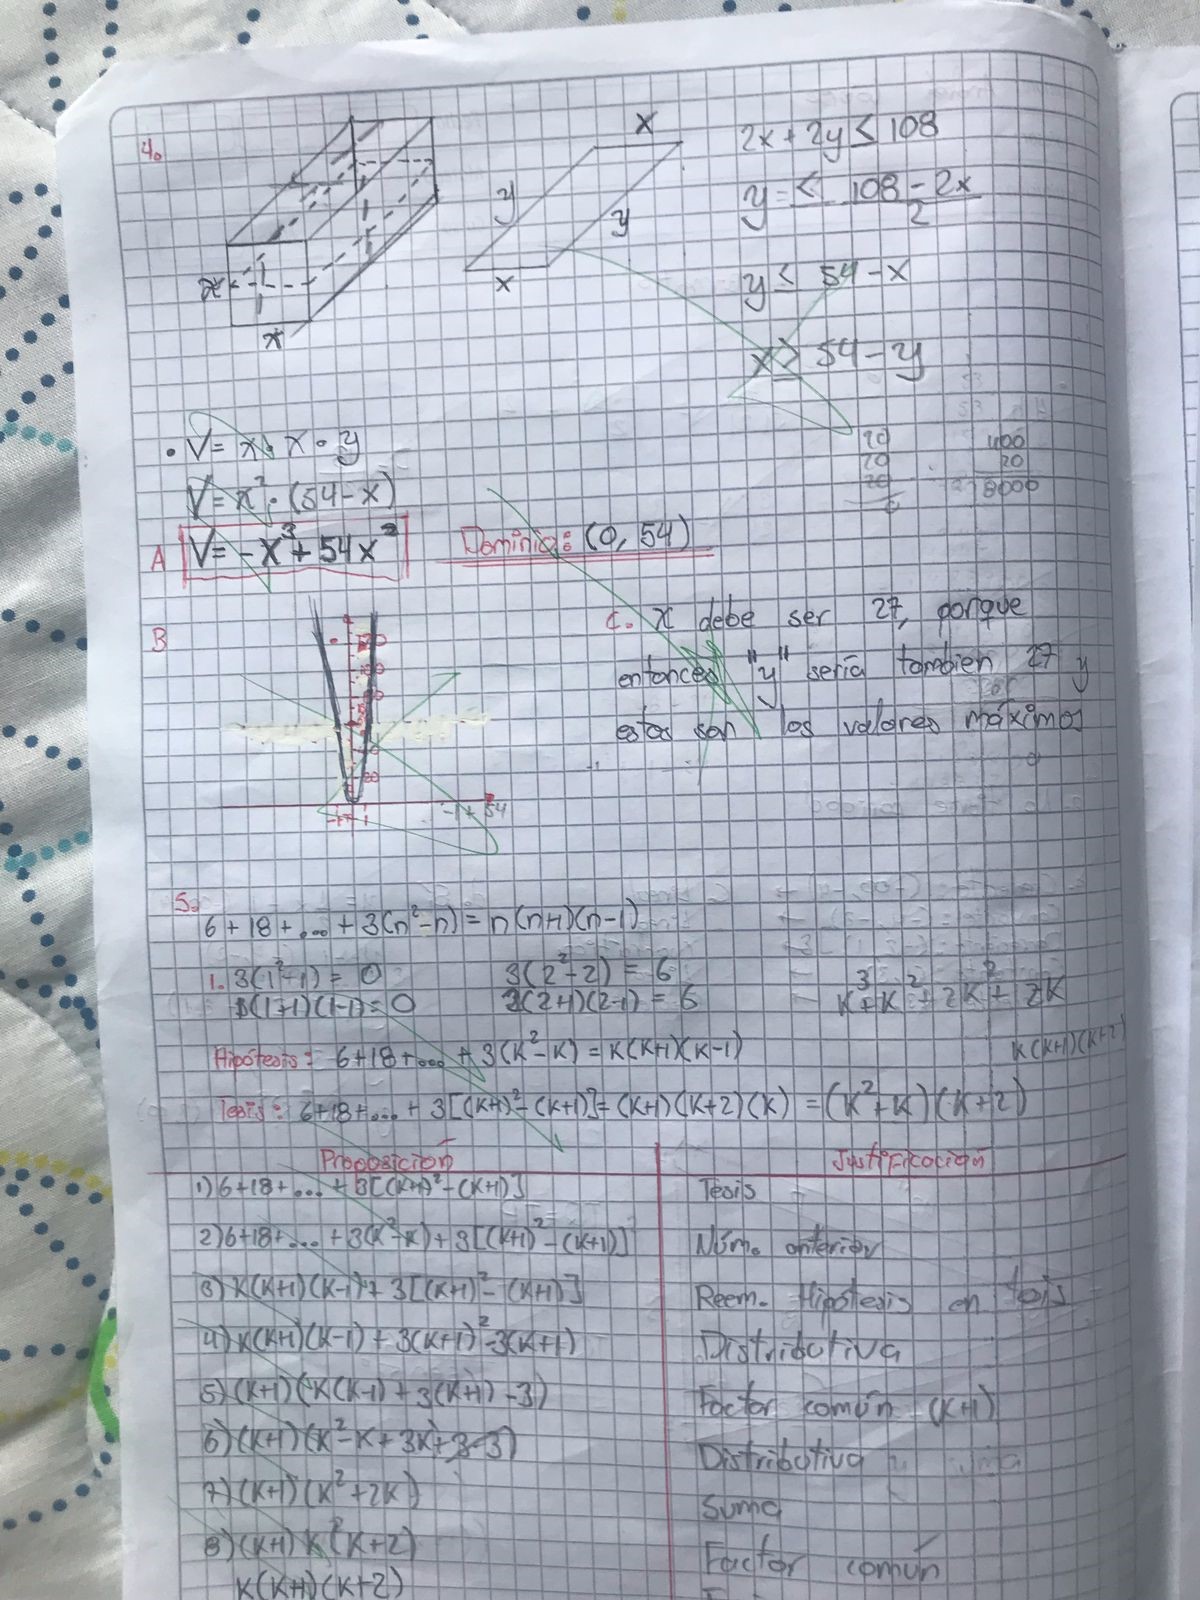 4.
x
y
y
x
x
x
2x + 2y ≤ 108
y = ≤ 108 - 2x
2
y ≤ 54 - x
x ≥ 54 - y
20
20
20
400
20
8000
• V = x • x • y
V = x² • (54 - x)
A V = -x³ + 54x² Dominio: (0, 54)
B
20
-1
1
54
c. x debe ser 27, porque
entonces "y" sería tambien 27 y
estos son los valores máximos
5.
6 + 18 + ... + 3(n² - n) = n(n+1)(n-1)
1. 3(1² - 1) = 0 3(2² - 2) = 6
1(1+1)(1-1) = 0 2(2+1)(2-1) = 6
k³ + k² + 2k² + 2k
k(k+1)(k+2)
Hipótesis: 6 + 18 + ... + 3(k² - k) = k(k+1)(k-1)
Tesis: 6+18+... + 3[(k+1)² - (k+1)] = (k+1)(k+2)(k) = (k² + k)(k+2)
Proposición Justificación
1) 6+18+... + 3[(k+1)² - (k+1)] Tesis
2) 6+18+... + 3(k² - k) + 3[(k+1)² - (k+1)] Núm. anterior
3) k(k+1)(k-1) + 3[(k+1)² - (k+1)] Reem. Hipótesis en
4) k(k+1)(k-1) + 3(k+1)² - 3(k+1) Distributiva
5) (k+1)(k(k-1) + 3(k+1) - 3) Factor común (k+1)
6) (k+1)(k² - k + 3k + 3 - 3) Distributiva
7) (k+1)(k² + 2k) Suma
8) (k+1) k (k+2) Factor común
k(k+1)(k+2)